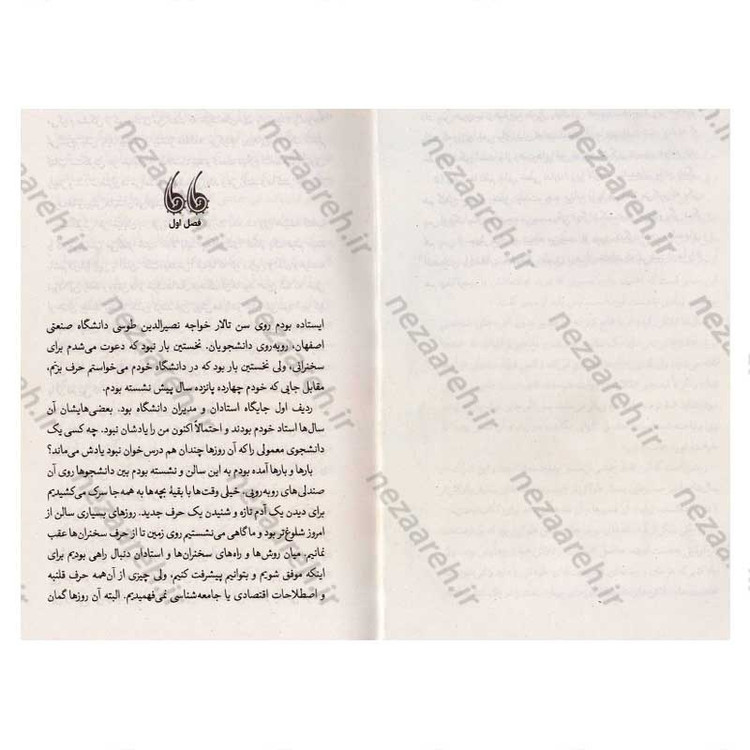 فصل اول
ایستاده بودم روی سن تالار خواجه نصیرالدین طوسی دانشگاه صنعتی
اصفهان، روبه‌روی دانشجویان. نخستین بار نبود که دعوت می‌شدم برای
سخنرانی، ولی نخستین بار بود که در دانشگاه خودم می‌خواستم حرف بزنم،
مقابل جایی که خودم چهارده پانزده سال پیش نشسته بودم.
ردیف اول جایگاه استادان و مدیران دانشگاه بود. بعضی‌هایشان آن
سال‌ها استاد خودم بودند و احتمالاً اکنون من را یادشان نبود. چه کسی یک
دانشجوی معمولی را که آن روزها چندان هم درس‌خوان نبود یادش می‌ماند؟
بارها و بارها آمده بودم به این سالن و نشسته بودم بین دانشجوها روی آن
صندلی‌های روبه‌رویی. خیلی وقت‌ها با بقیهٔ بچه‌ها به همه‌جا سرک می‌کشیدیم
برای دیدن یک آدم تازه و شنیدن یک حرف جدید. روزهای بسیاری سالن از
امروز شلوغ‌تر بود و ما گاهی می‌نشستیم روی زمین تا از حرف سخنران‌ها عقب
نمانیم. میان روش‌ها و راه‌های سخنران‌ها و استادان دنبال راهی بودیم برای
اینکه موفق شویم و بتوانیم پیشرفت کنیم، ولی چیزی از آن‌همه حرف قلنبه
و اصطلاحات اقتصادی یا جامعه‌شناسی نمی‌فهمیدیم. البته آن روزها گمان
nezaareh.ir
nezaareh.ir
nezaareh.ir
nezaareh.ir
nezaareh.ir
nezaareh.ir
nezaareh.ir
nezaareh.ir